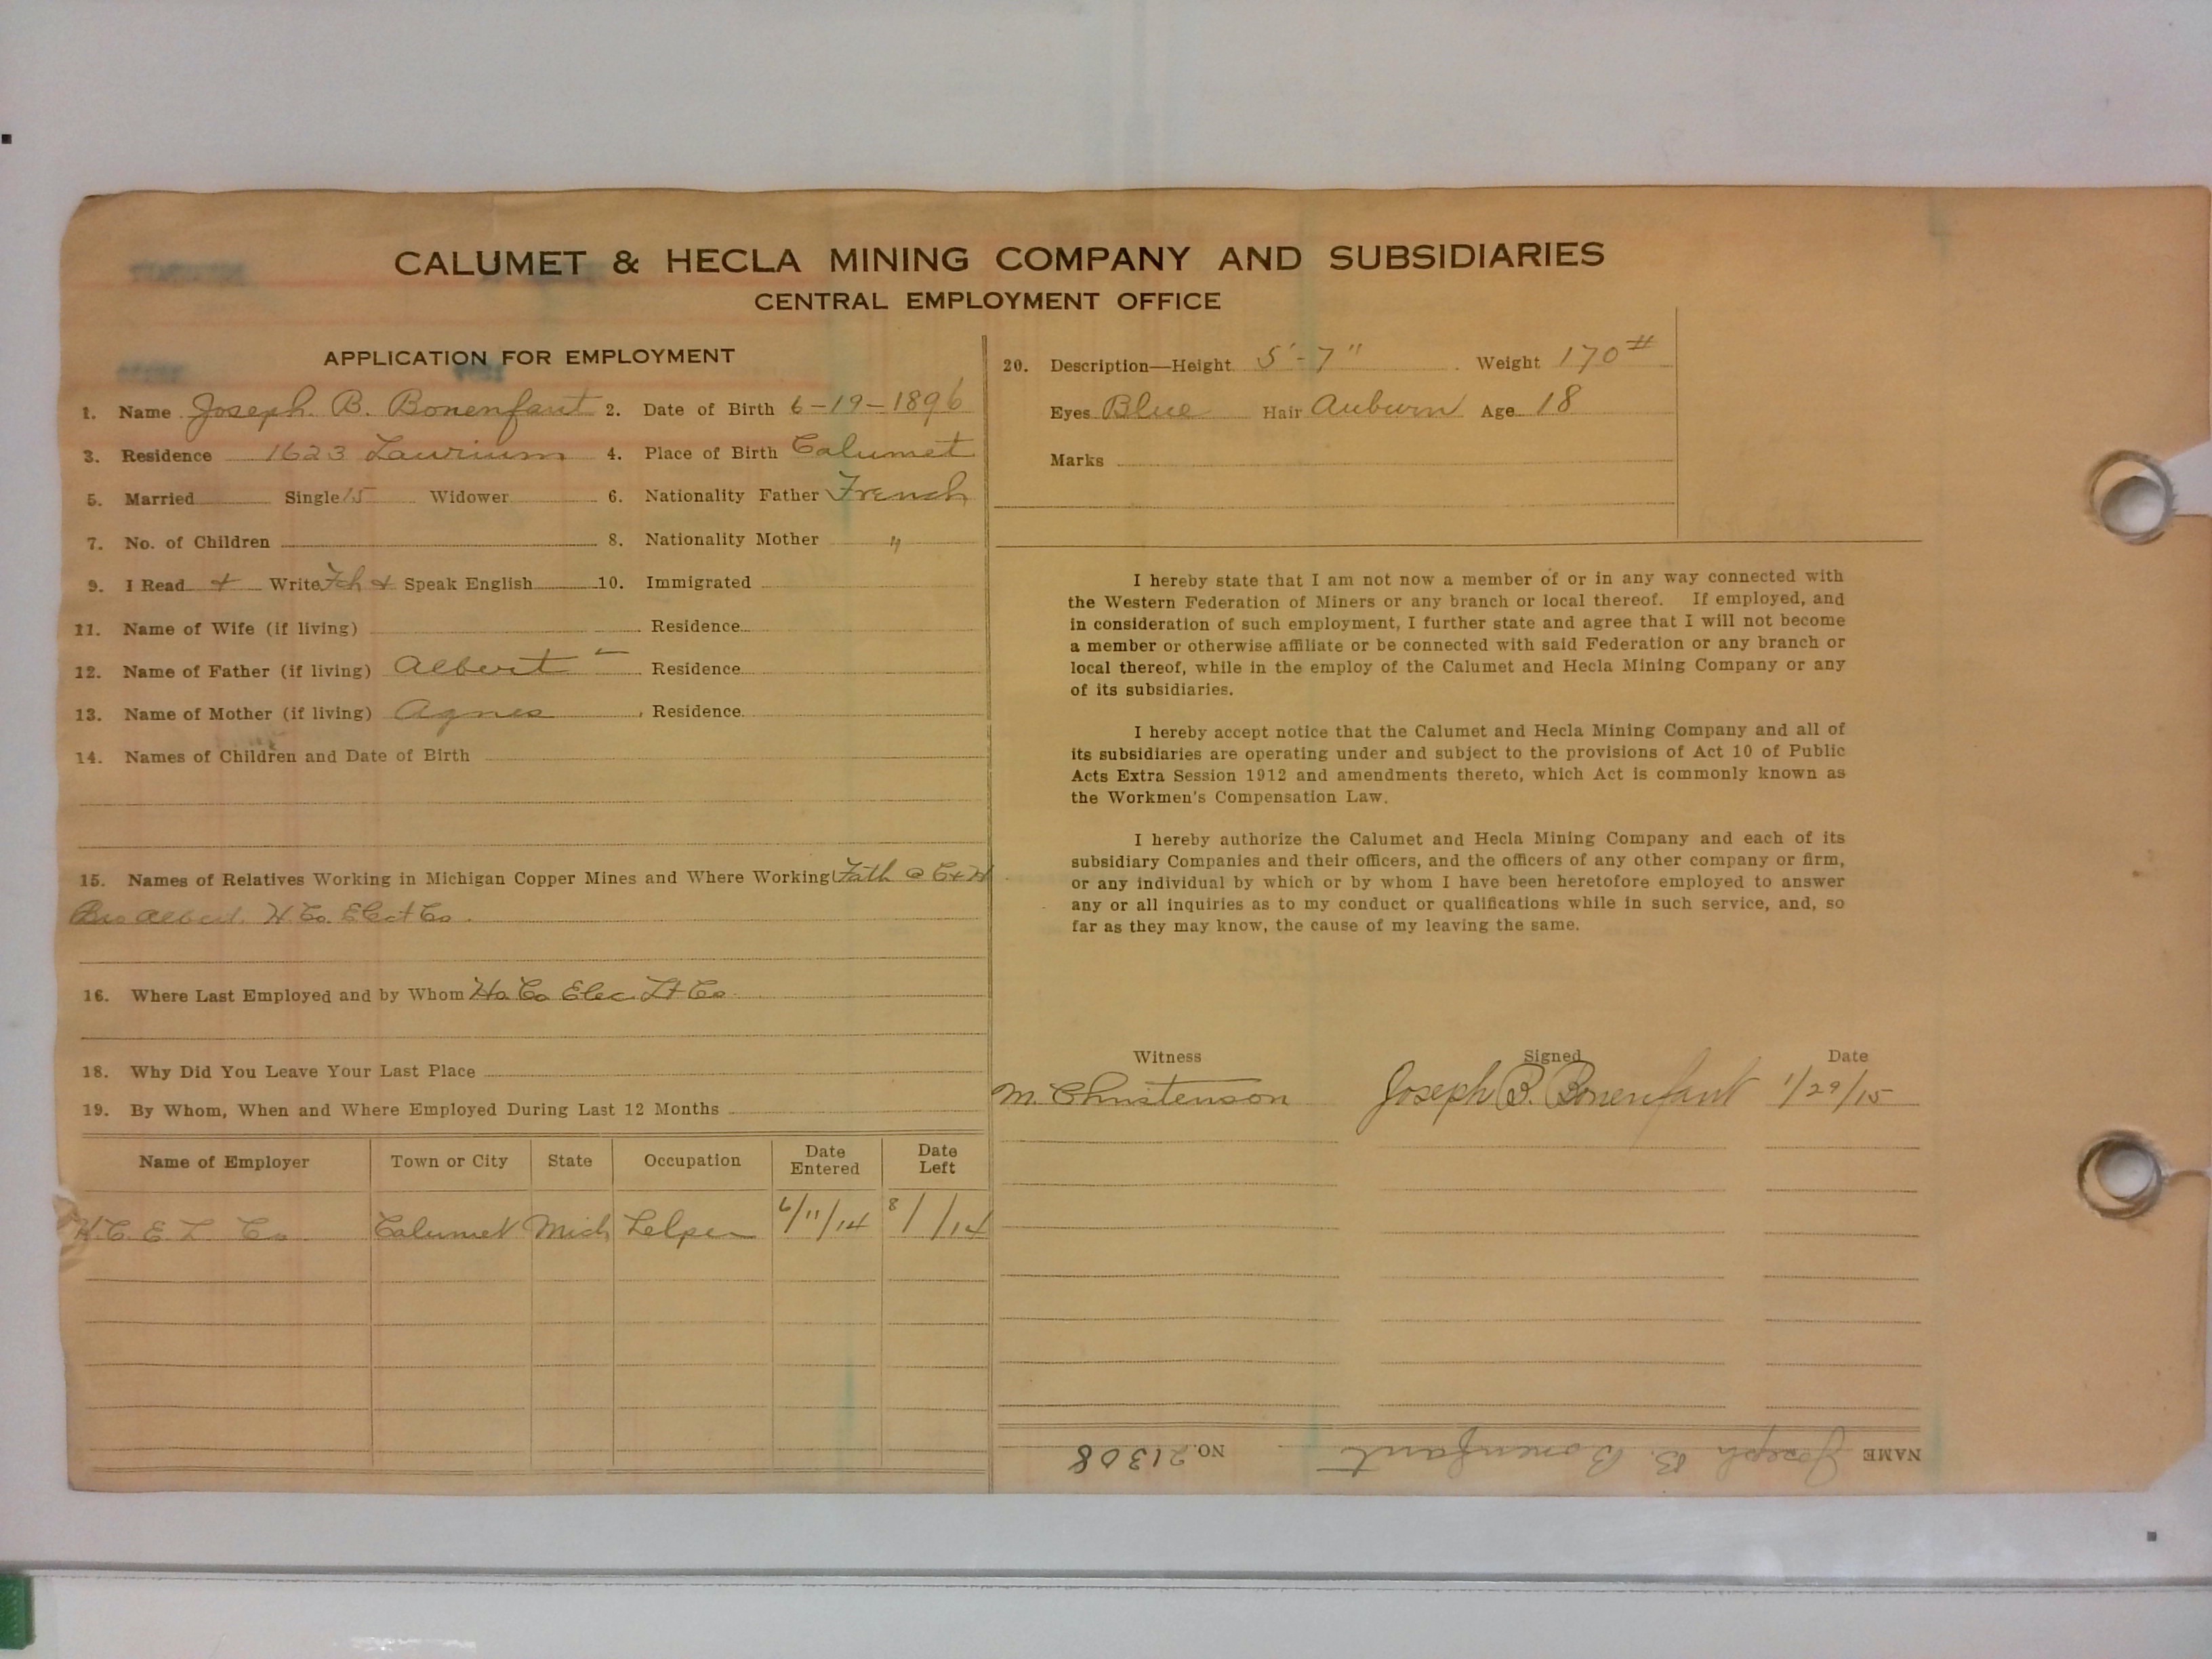 CALUMET & HECLA MINING COMPANY AND SUBSIDIARIES
CENTRAL EMPLOYMENT OFFICE
APPLICATION FOR EMPLOYMENT
1. Name Joseph. B. Bonenfant 2. Date of Birth 6-19-1896
3. Residence 1623 Laurium 4. Place of Birth Calumet
5. Married Single 15 Widower 6. Nationality Father French
7. No. of Children 8. Nationality Mother "
9. I Read + Write Fch + Speak English 10. Immigrated
11. Name of Wife (if living) Residence
12. Name of Father (if living) Albert Residence
13. Name of Mother (if living) Agnes Residence
14. Names of Children and Date of Birth
15. Names of Relatives Working in Michigan Copper Mines and Where Working Fath @ C+H
Bro Albert. H. Co. Elect Co.
16. Where Last Employed and by Whom Ho. Co Elec. Lt Co
18. Why Did You Leave Your Last Place
19. By Whom, When and Where Employed During Last 12 Months
Name of Employer Town or City State Occupation Date Entered Date Left
H.C. E. L. Co. Calumet Mich Helper 6/11/14 8/ /14
20. Description—Height 5'-7" Weight 170#
Eyes Blue Hair Auburn Age 18
Marks
I hereby state that I am not now a member of or in any way connected with
the Western Federation of Miners or any branch or local thereof. If employed, and
in consideration of such employment, I further state and agree that I will not become
a member or otherwise affiliate or be connected with said Federation or any branch or
local thereof, while in the employ of the Calumet and Hecla Mining Company or any
of its subsidiaries.
I hereby accept notice that the Calumet and Hecla Mining Company and all of
its subsidiaries are operating under and subject to the provisions of Act 10 of Public
Acts Extra Session 1912 and amendments thereto, which Act is commonly known as
the Workmen's Compensation Law.
I hereby authorize the Calumet and Hecla Mining Company and each of its
subsidiary Companies and their officers, and the officers of any other company or firm,
or any individual by which or by whom I have been heretofore employed to answer
any or all inquiries as to my conduct or qualifications while in such service, and, so
far as they may know, the cause of my leaving the same.
Witness Signed Date
M. Christenson Joseph B. Bonenfant 1/29/15
NAME Joseph B. Bonenfant NO. 21308